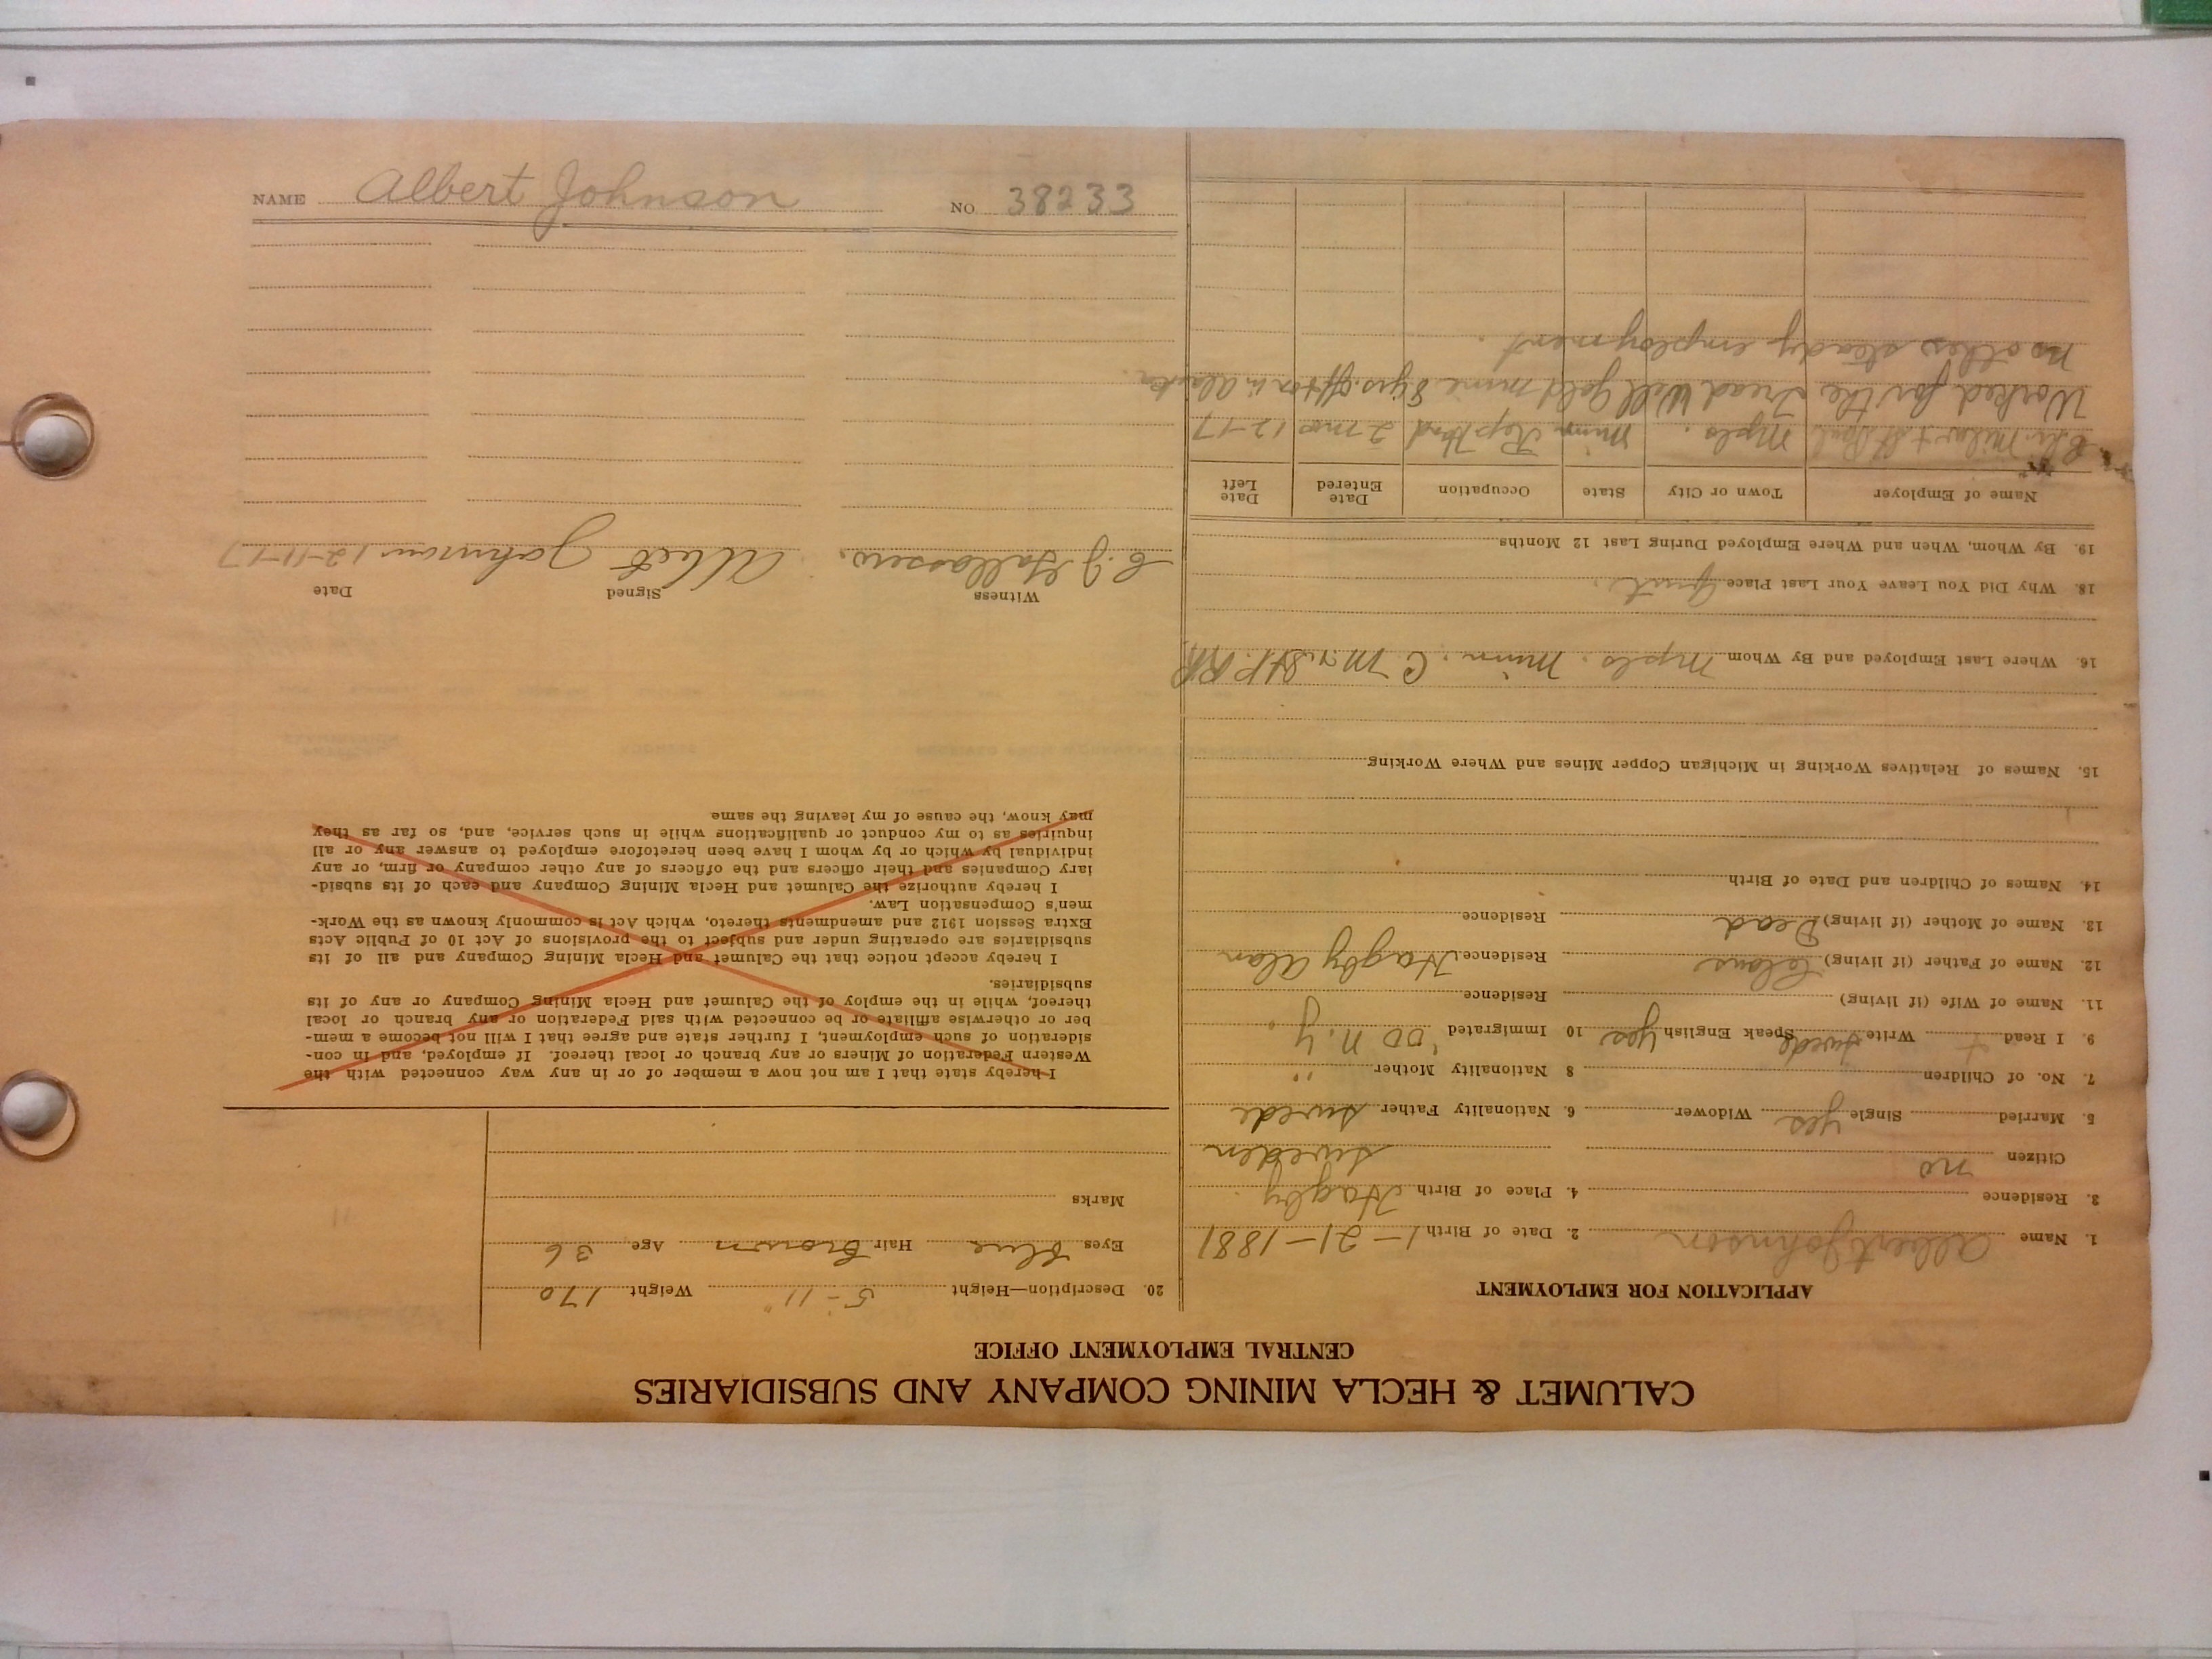 CALUMET & HECLA MINING COMPANY AND SUBSIDIARIES
CENTRAL EMPLOYMENT OFFICE
APPLICATION FOR EMPLOYMENT
1. Name Albert Johnson 2. Date of Birth 1-21-1881
3. Residence 4. Place of Birth Hagby
Citizen no Sweden
5. Married Single yes Widower 6. Nationality Father Swede
7. No. of Children 8 Nationality Mother "
9. I Read + Write Swede Speak English yes 10 Immigrated '00 N.Y.
11. Name of Wife (if living) Residence
12. Name of Father (if living) Residence Hagby
13. Name of Mother (if living) Dead Residence
14. Names of Children and Date of Birth
15. Names of Relatives Working in Michigan Copper Mines and Where Working
16. Where Last Employed and By Whom Mpls. Minn. C M. & St. P. RR
18. Why Did You Leave Your Last Place Quit.
19. By Whom, When and Where Employed During Last 12 Months
Name of Employer Town or City State Occupation Date Entered Date Left
Chi. Milw. & St Paul Mpls. Minn 2 mos 12-17
Worked for the Treadwell gold mine 8 yrs. off & on in Alaska.
No other steady employment.
20. Description—Height 5-11" Weight 170
Eyes Blue Hair Brown Age 36
Marks
I hereby state that I am not now a member of or in any way connected with the
Western Federation of Miners or any branch or local thereof. If employed, and in con-
sideration of such employment, I further state and agree that I will not become a mem-
ber or otherwise affiliate or be connected with said Federation or any branch or local
thereof, while in the employ of the Calumet and Hecla Mining Company or any of its
subsidiaries.
I hereby accept notice that the Calumet and Hecla Mining Company and all of its
subsidiaries are operating under and subject to the provisions of Act 10 of Public Acts
Extra Session 1912 and amendments thereto, which Act is commonly known as the Work-
men's Compensation Law.
I hereby authorize the Calumet and Hecla Mining Company and each of its subsid-
iary Companies and their officers and the officers of any other company or firm, or any
individual by which or by whom I have been heretofore employed to answer any or all
inquiries as to my conduct or qualifications while in such service, and, so far as they
may know, the cause of my leaving the same
Witness Signed Date
Albert Johnson 12-11-17
NAME Albert Johnson NO 38233